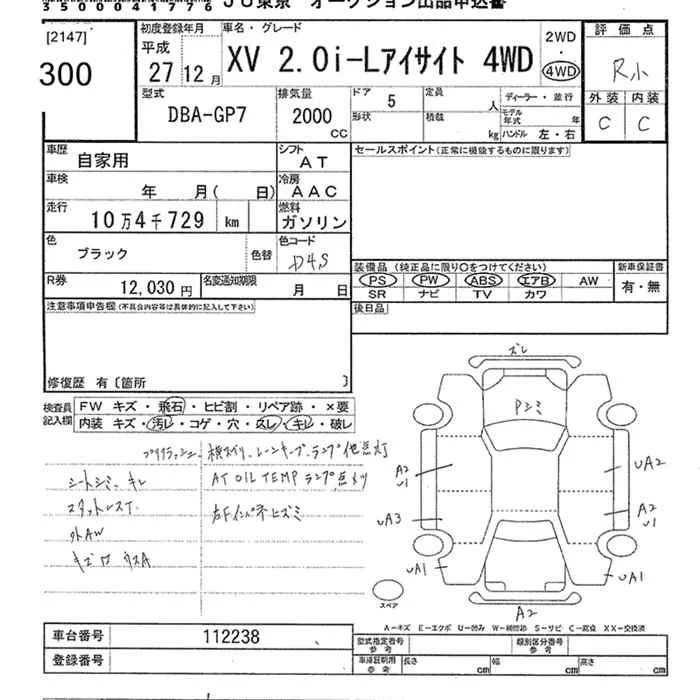 35000411776 JU東京 オークション出品申込書
[2147]
300
初度登録年月 車名・グレード
平成 27 12月
XV 2.0i-Lアイサイト 4WD
2WD
・
4WD
評価点
R小
型式 DBA-GP7
排気量 2000 CC
ドア 5
形状
定員 人
積載 kg
ディーラー・並行
モデル年式 年
ハンドル 左・右
外装 内装
C C
車歴 自家用
シフト AT
セールスポイント(正常に機能するものに限ります)
車検 年 月( 日)
冷房 AAC
走行 10万4千729 km
燃料 ガソリン
色 ブラック 色替
色コード D4S
装備品 (純正品に限り○をつけてください)
新車保証書
PS PW ABS エアB AW
SR ナビ TV カワ
有・無
R券 12,030円
名変通知期限 月 日
後日品
注意事項申告欄(不具合内容等は具体的に記入して下さい)
修復歴 有〔箇所 〕
検査員記入欄
FW キズ・飛石・ヒビ割・リペア跡・×要
内装 キズ・汚レ・コゲ・穴・スレ・キレ・破レ
プリクラッシュ、横スベリ、レーンキープランプ他点灯
シートシミ、キレ
AT OIL TEMP ランプ点灯
スタットレスT
右Fインパネヒズミ
外AW
ズレ
Pシミ
A2
U1
UA2
UA3
A2
U1
UA1
UA1
A2
スペア
A－キズ E－エクボ U－凹み W－補修跡 S－サビ C－腐食 XX－交換済
車台番号 112238
登録番号
型式指定番号 参考
類別区分番号 参考
車庫証明用 参考
長さ cm
幅 cm
高さ cm